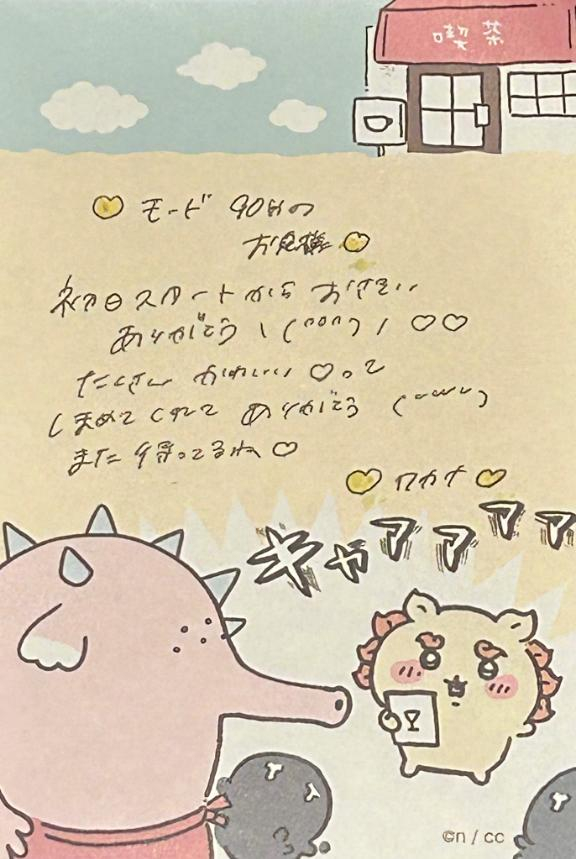 喫茶
♡ モード 90分の
お客様 ♡
初日スタートから お誘い
ありがとう \(^o^)/ ♡♡
たくさん かわいい♡って
しまめて くれて ありがとう
また 待ってるね ♡
♡ ワカナ ♡
キャアアアア
©n / cc